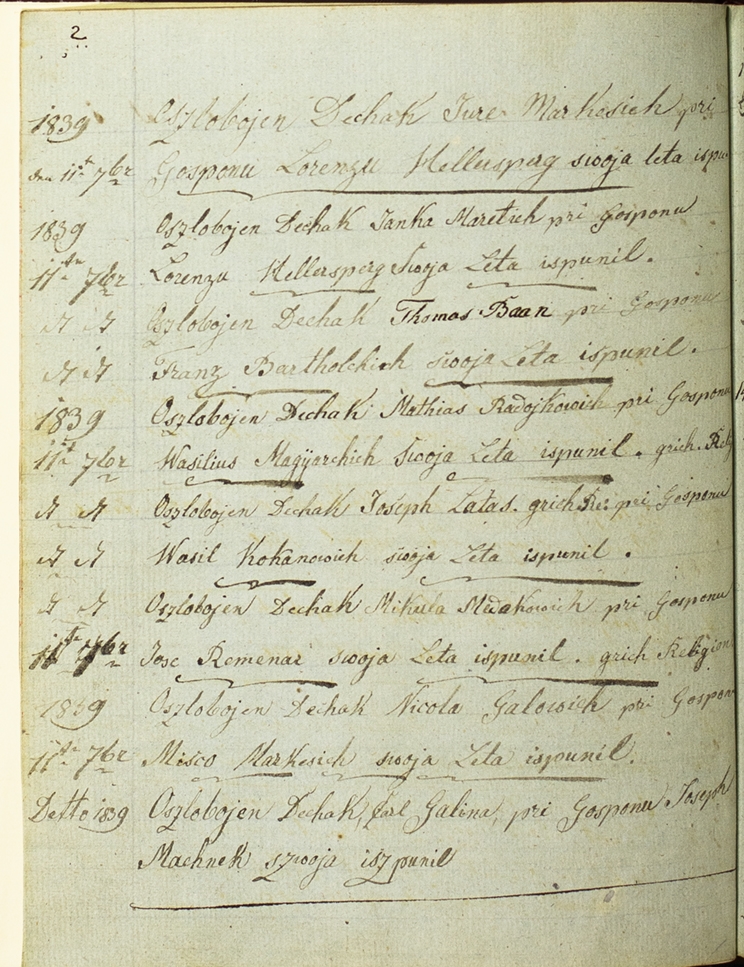 2
1839 Oszlobojen Dechak Jure Markesich pri
den 11te 7ber Gosponu Lorenzu Hellersperg swoja leta ispu
1839 Oszlobojen Dechak Janka Maretich pri Gosponu
11te 7ber Lorenzu Hellersperg swoja Leta ispunil.
Oszlobojen Dechak Thomas Baan pri Gosponu
Franz Bartholchich swoja Leta ispunil.
1839 Oszlobojen Dechak Mathias Radojkowich pri Gosponu
11te 7ber Wasilius Magijarchich swoja Leta ispunil. grich. Reli
Oszlobojen Dechak Joseph Latas. grich Re: pri Gosponu
Wasil Kokanowich swoja Leta ispunil.
Oszlobojen Dechak Mikula pri Gosponu
11te 7ber Jose Remenar swoja Leta ispunil. grich Religion
1839 Oszlobojen Dechak Nicola Galowich pri Gospon
11te 7ber Misco Markesich swoja Leta ispunil.
Detto 1839 Oszlobojen Dechak, Carl Galina, pri Gosponu Joseph
Machnek szwoja iszpunil